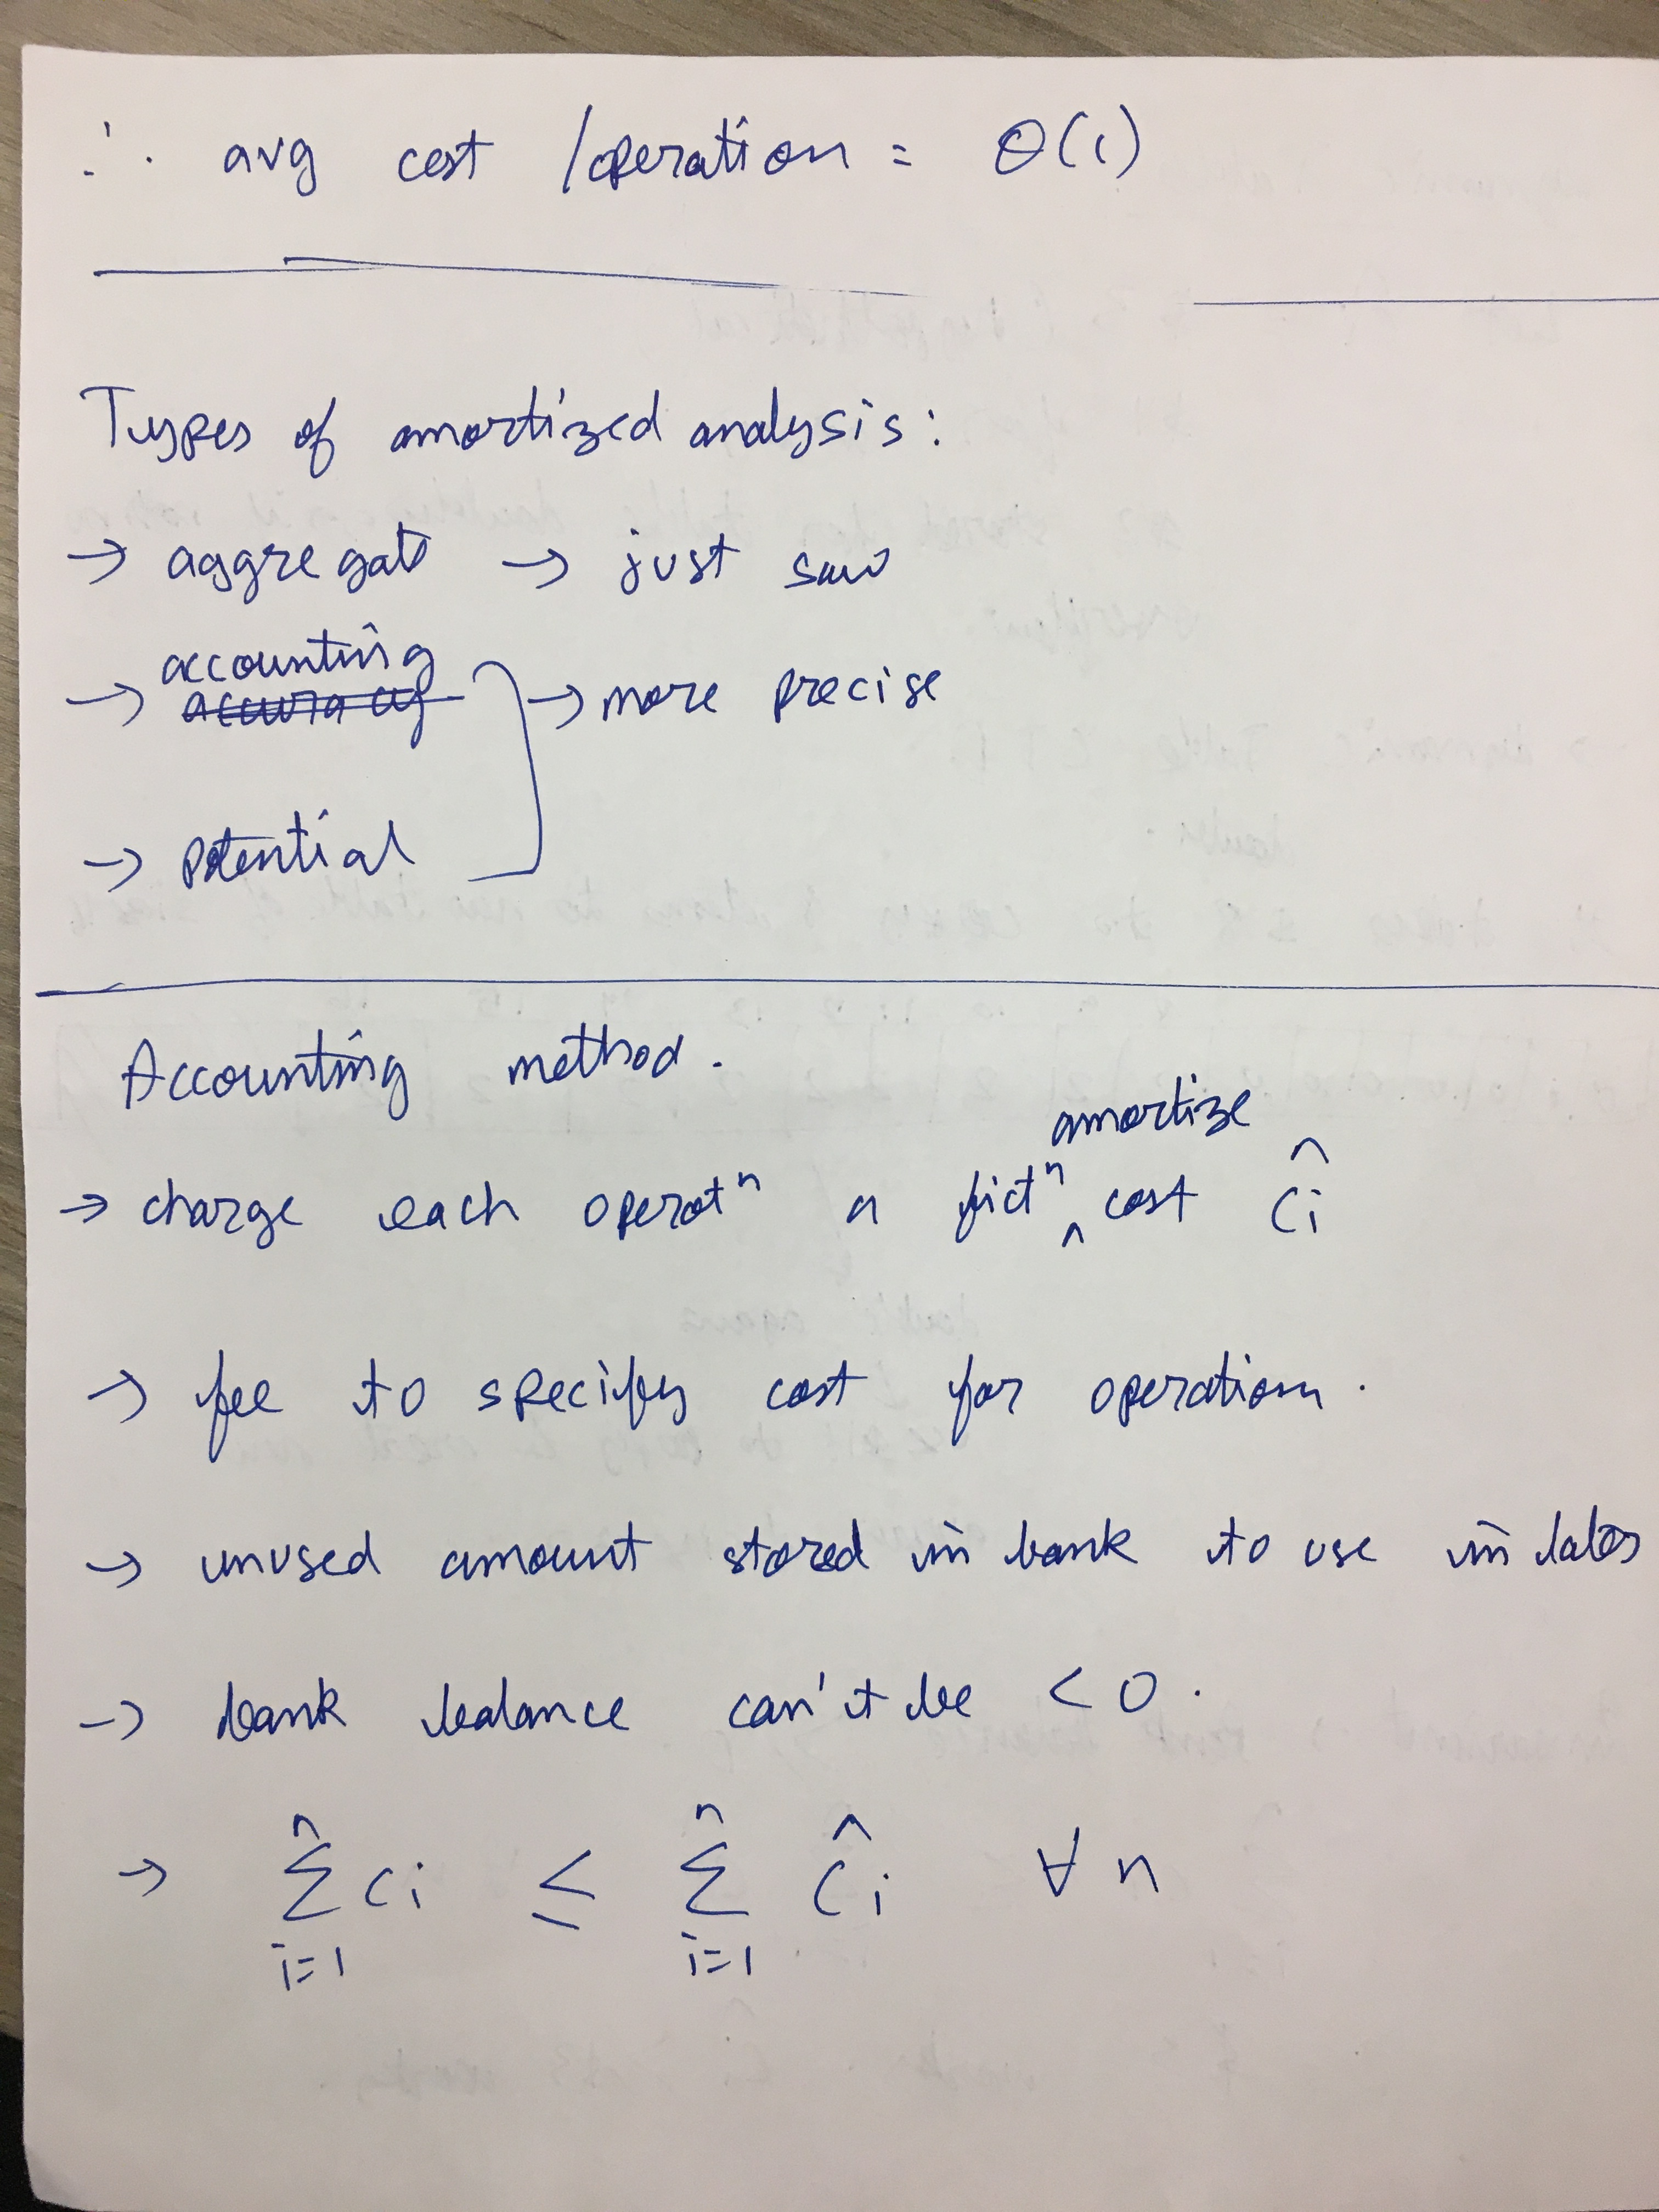 ∴ avg cost /operation = Θ(1)
Types of amortized analysis:
→ aggregate → just saw
→ accounting → more precise
accuracy
→ potential
Accounting method.
amortize
→ charge each operatⁿ a fictⁿ ^ cost ĉi
→ fee to specify cost for operation.
→ unused amount stored in bank to use in later
→ bank balance can't be < 0.
→ n∑i=1 ci ≤ n∑i=1 ĉi ∀ n